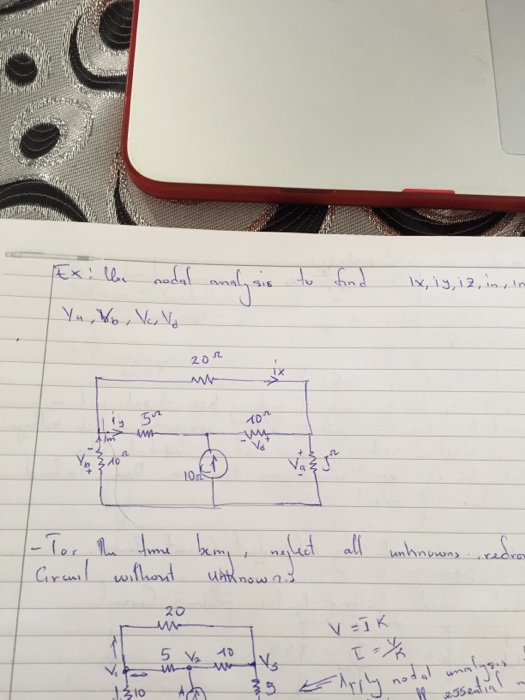 Ex: Use nodal analysis to find ix, iy, iz, in, im
Va, Vb, Vc, Vd
20Ω
ix
iy 5Ω 10Ω
im - Vd +
Vb - + 10Ω 10 Va + - 5Ω
- For the time being, neglect all unknowns, redraw
Circuit without unknowns
20
V = IR
I = V/R
5 V2 10
V1 V3
10 5 Apply nodal analysis
essential